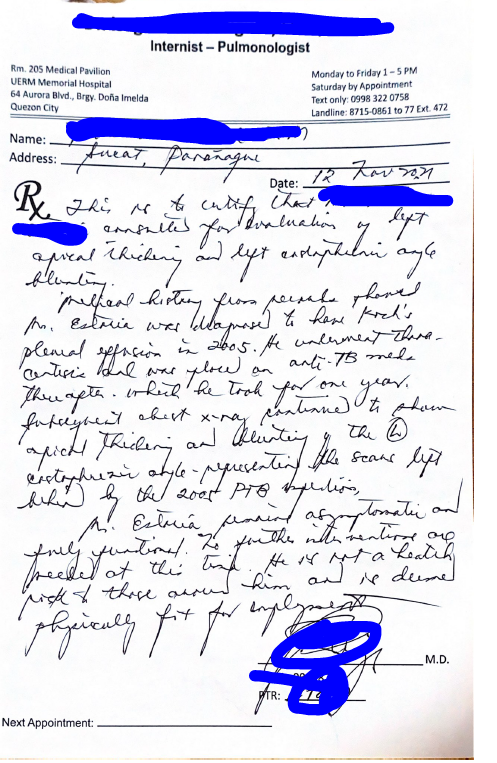 Internist – Pulmonologist
Rm. 205 Medical Pavilion
UERM Memorial Hospital
64 Aurora Blvd., Brgy. Doña Imelda
Quezon City
Monday to Friday 1 – 5 PM
Saturday by Appointment
Text only: 0998 322 0758
Landline: 8715-0861 to 77 Ext. 472
Name:
Address: Sucat, Parañaque
Date: 12 Nov 2021
Rx This is to certify that
consulted for evaluation of left
apical thickening and left costophrenic angle
blunting.
Medical history from records showed
Mr. Estoria was diagnosed to have Koch's
pleural effusion in 2005. He underwent thora-
centesis and was placed on anti-TB meds
thereafter. which he took for one year.
Subsequent chest x-ray continued to show
apical thickening and blunting of the (L)
costophrenic angle - representing the scars left
behind by the 2005 PTB infection.
Mr. Estoria remains asymptomatic and
fully functional. No further interventions are
needed at this time. He is not a health
risk to those around him and is deemed
physically fit for employment
M.D.
PTR:
Next Appointment: